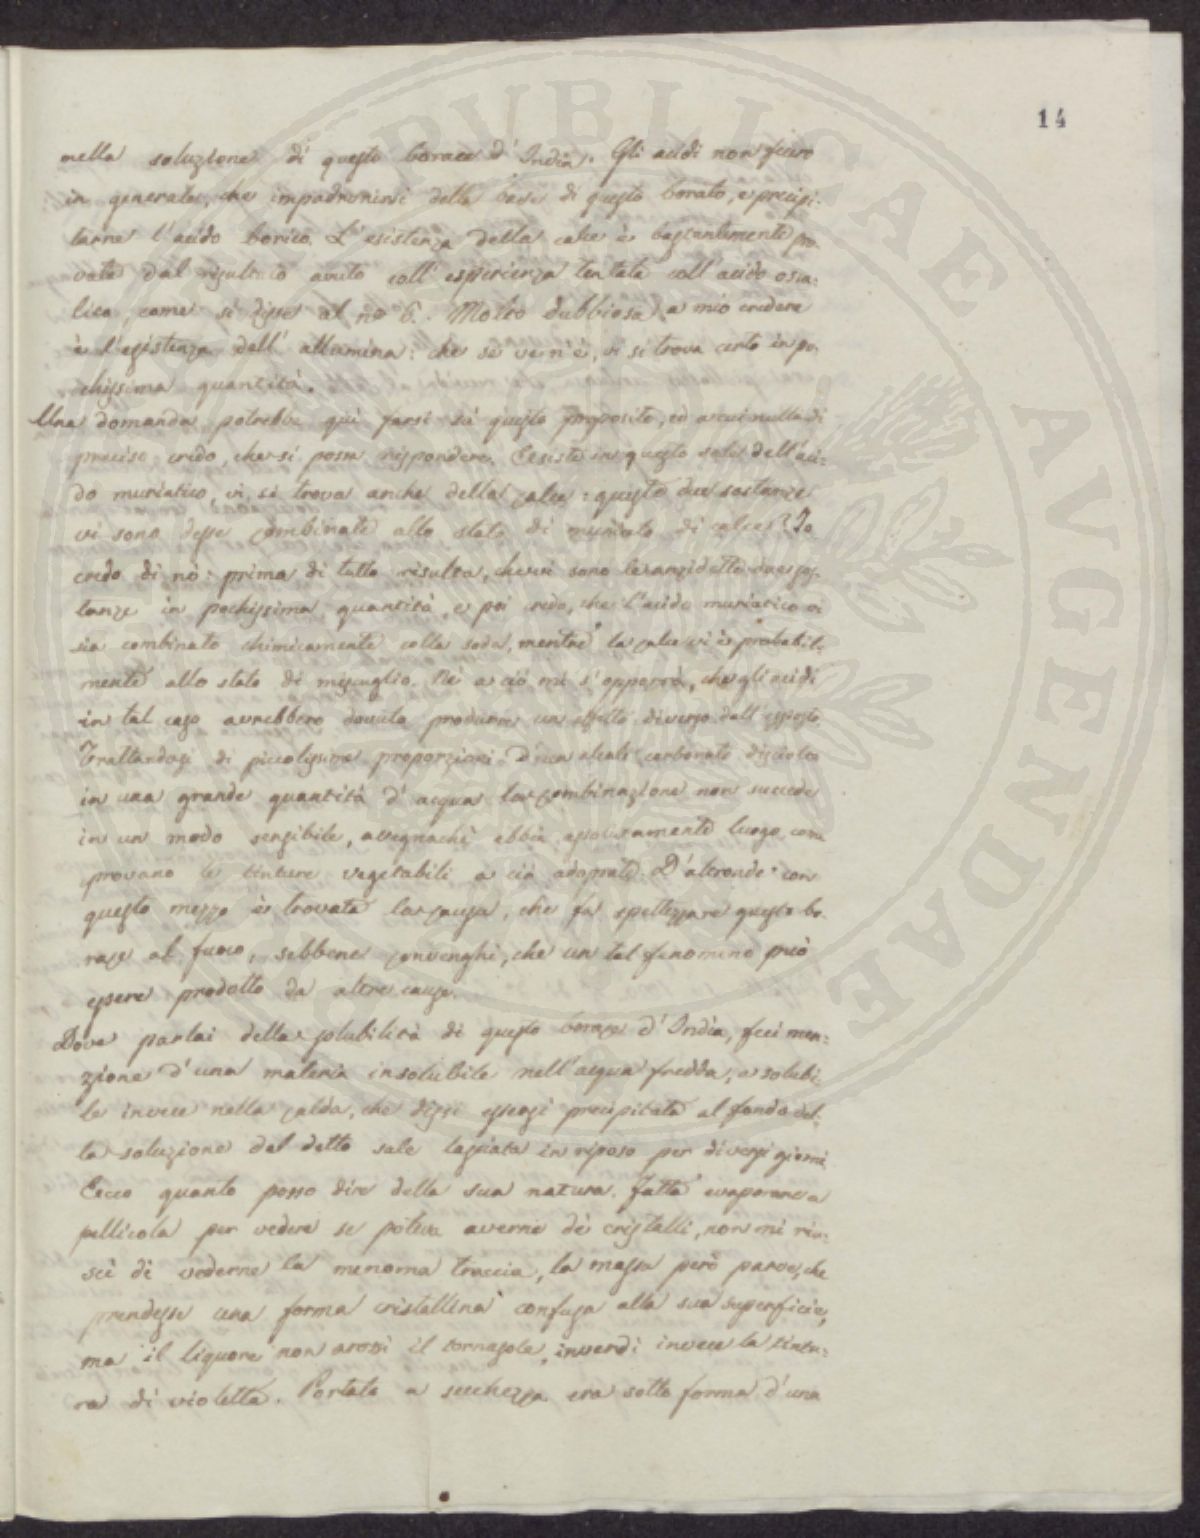 14
nella soluzione di questo borace d'India. Gli acidi non fecero
in generale, che impadronirsi della base di questo borato, e precipi-
tarne l'acido borico. L'esistenza della calce è bastantemente pro-
vata dal risultato avuto coll'esperienza tentata coll'acido ossa-
lico, come si disse al no 6. Molto dubbiosa a mio credere
è l'esistenza dell'allumina: che se ve n'è, vi si trova certo in po-
chissima quantità.
Una domanda potrebbe quì farsi sù questo proposito, ed a cui nulla di
preciso credo, che si possa rispondere. Esiste in questo sale dell'aci-
do muriatico, vi si trova anche della calce: queste due sostanze
vi sono desse combinate allo stato di muriato di calce? Io
credo di nò: prima di tutto risulta, che vi sono le anzidette due sos-
tanze in pochissima quantità, e poi credo, che l'acido muriatico vi
sia combinato chimicamente colla soda, mentre la calce vi è probabil-
mente allo stato di mescuglio. Nè a ciò mi s'opporrà, che gli acidi
in tal caso avrebbero dovuto produrre un effetto diverso dall'esposto.
Trattandosi di piccolissime proporzioni d'un alcali carbonato disciolto
in una grande quantità d'acqua la combinazione non succede
in un modo sensibile, avvegnachè ebbia assolutamente luogo, com
provano le tinture vegetabili a ciò adoprate. D'altronde con
questo mezzo è trovata la causa, che fa spettezzare questo bo-
race al fuoco, sebbene convenghi, che un tal fenomeno può
essere prodotto da altre cause.
Dove parlai della solubilità di questo borace d'India, feci men-
zione d'una materia insolubile nell'acqua fredda, e solubi
le invece nella calda, che dissi essersi precipitata al fondo del-
la soluzione del detto sale lasciata in riposo per diversi giorni.
Ecco quanto posso dire della sua natura. Fatta evaporare a
pellicola per vedere se poteva averne dè cristalli, non mi riu-
scì di vederne la menoma traccia, la massa però parve, che
prendesse una forma cristallina confusa alla sua superficie,
ma il liquore non arossì il tornasole, inverdì invece la tintu-
ra di violetta. Portata a secchezza era sotto forma d'una
PUBLICAE AVGENDAE